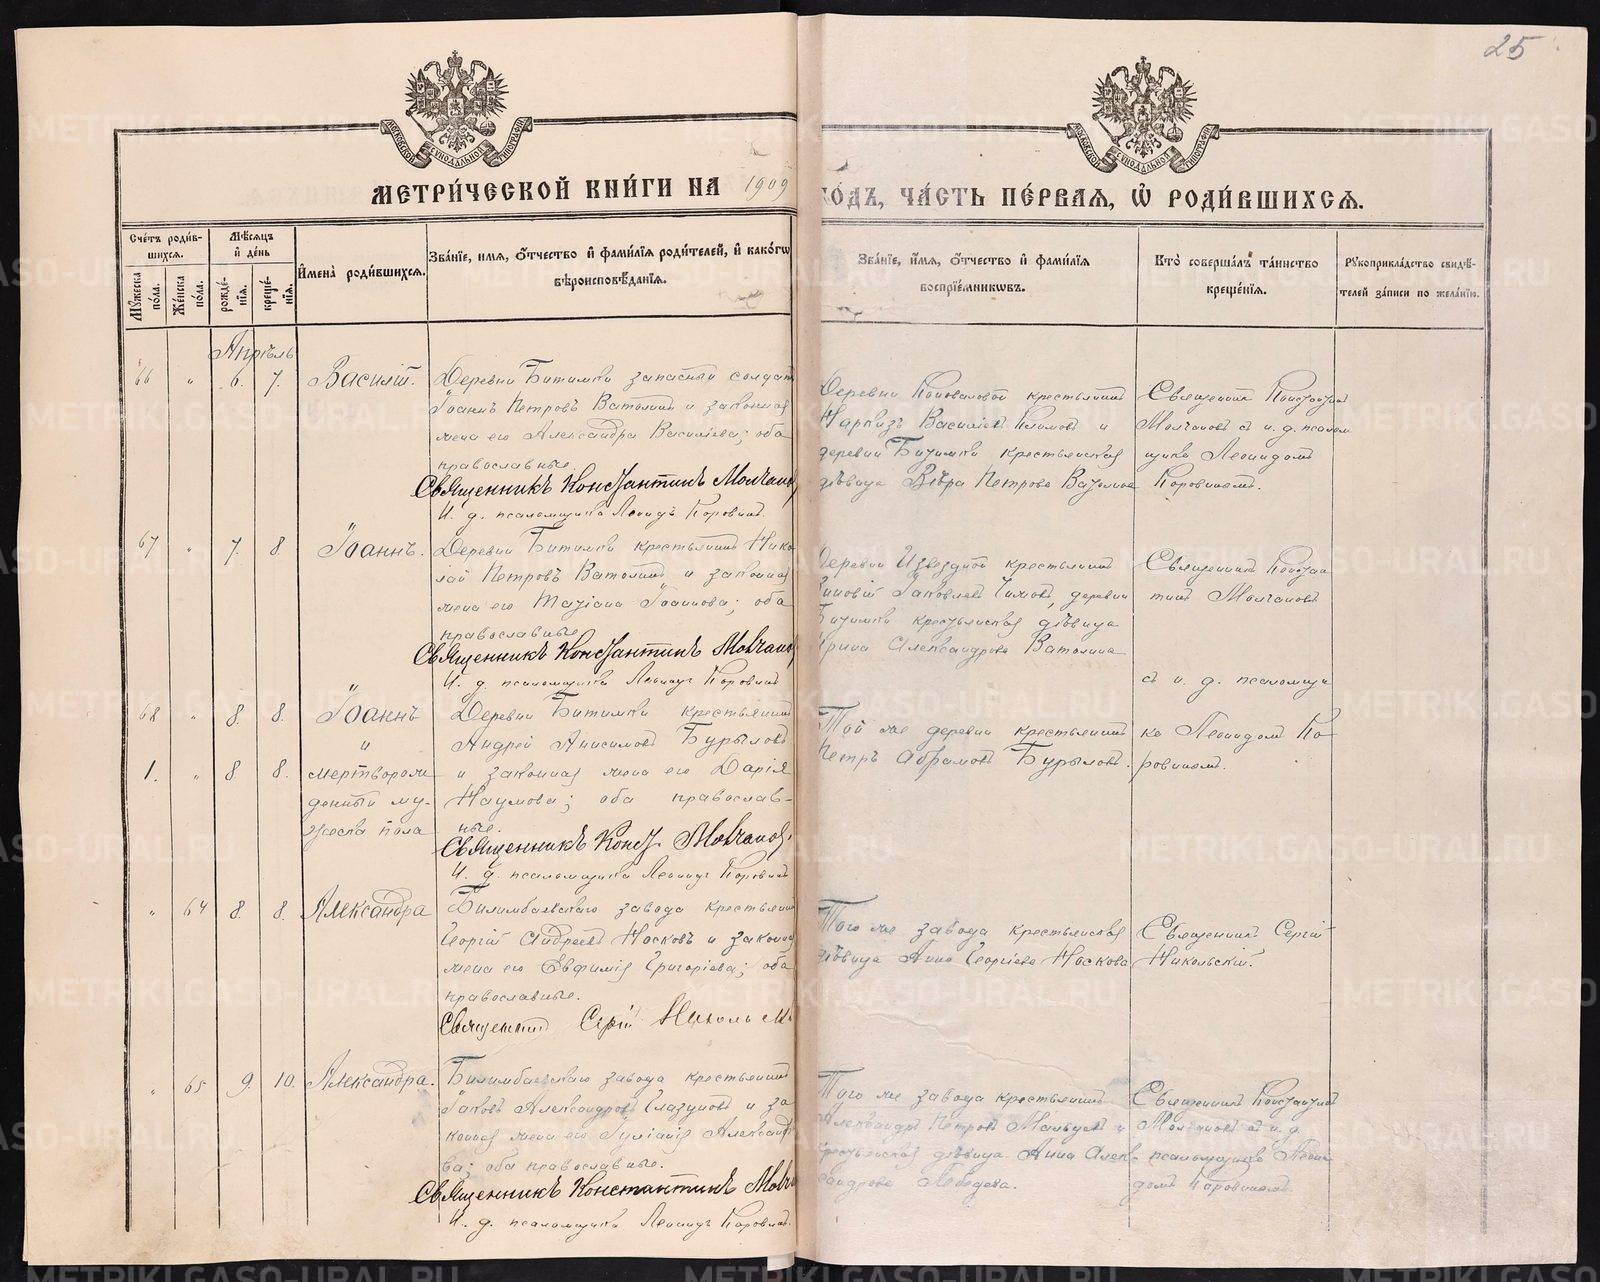 25
МОСКОВСКОЙ СѴНОДАЛЬНОЙ ТИПОГРАФІИ
МОСКОВСКОЙ СѴНОДАЛЬНОЙ ТИПОГРАФІИ
МЕТРИ́ЧЕСКОЙ КНИ́ГИ НА 1909
ГО́ДЪ, ЧА́СТЬ ПЕ́РВАЯ, Ѡ҆ РОДИ́ВШИХСЯ.
Сче́тъ роди́в-
шихся.
Мꙋ́жеска по́ла.
Же́нска по́ла.
Мѣ́сяцъ и҆ де́нь
рожде́-
нія.
креще́-
нія.
И҆мена̀ роди́вшихся.
Зва́ніе, имя, ѻ҆́тчество и҆ фами́лія роди́телей, и҆ како́гѡ
вѣроисповѣ́данія.
Зва́ніе, и҆́мя, ѻ҆́тчество и҆ фами́лія
воспріе́мникѡвъ.
Кто̀ соверша́лъ та́инство
креще́нія.
Рꙋкоприкла́дство свидѣ́-
телей за́писи по жела́нію.
Апрѣль
66 " 6. 7. Василій.
Деревни Битимки запасный солдатъ
Іоаннъ Петровъ Ватолинъ и законная
жена его Александра Василіева; оба
православные.
Священникъ Константинъ Молчановъ
И. д. псаломщика Леонидъ Коровинъ.
Деревни Коноваловой крестьянинъ
Наркизъ Василіевъ Климовъ и
деревни Битимки крестьянская
дѣвица Вѣра Петрова Ватолина
Священникъ Константинъ
Молчановъ съ и. д. псалом
щика Леонидомъ
Коровинымъ.
67 " 7. 8. Іоаннъ.
Деревни Битимки крестьянинъ Нико
лай Петровъ Ватолинъ и законная
жена его Татіана Іоаннова; оба
православные
Священникъ Константинъ Молчановъ
И. д. псаломщика Леонидъ Коровинъ
Деревни Извездной крестьянинъ
Зиновій Іаковлевъ деревни
Битимки крестьянская дѣвица
Ирина Александрова Ватолина
Священникъ Констан
тинъ Молчановъ
съ и. д. псаломщи
68 " 8. 8. Іоаннъ
"
1. " 8 8. мертворож
денный му-
жеска пола
Деревни Битимки крестьянинъ
Андрей Анисимовъ Бурыловъ
и законная жена его Дарія
Наумова; оба православ-
ные.
Священникъ Конст. Молчановъ
И. д. псаломщика Леонидъ Коровинъ
Той же деревни крестьянинъ
Петръ Абрамовъ Бурыловъ.
ка Леонидомъ Ко
ровинымъ.
" 64 8. 8. Александра
Билимбаевскаго завода крестьянинъ
Георгій Андреевъ Носковъ и законная
жена его Евфимія Григоріева; оба
православные.
Священникъ Сергій Никольскій
Того же завода крестьянская
дѣвица Анна Георгіева Носкова
Священникъ Сергій
Никольскій.
" 65 9. 10. Александра.
Билимбаевскаго завода крестьянинъ
Іаковъ Александровъ Глазуновъ и за
конная жена его Іуліанія Александро
ва; оба православные.
Священникъ Константинъ Молча
И. д. псаломщика Леонидъ Коровинъ.
Того же завода крестьянинъ
Александръ Петровъ Мальцевъ и
крестьянская дѣвица Анна Алек-
сандрова Лебедева.
Священникъ Константинъ
Молчановъ съ и. д.
псаломщика Леони
домъ Коровинымъ.
METRIKI.GASO-URAL.RU